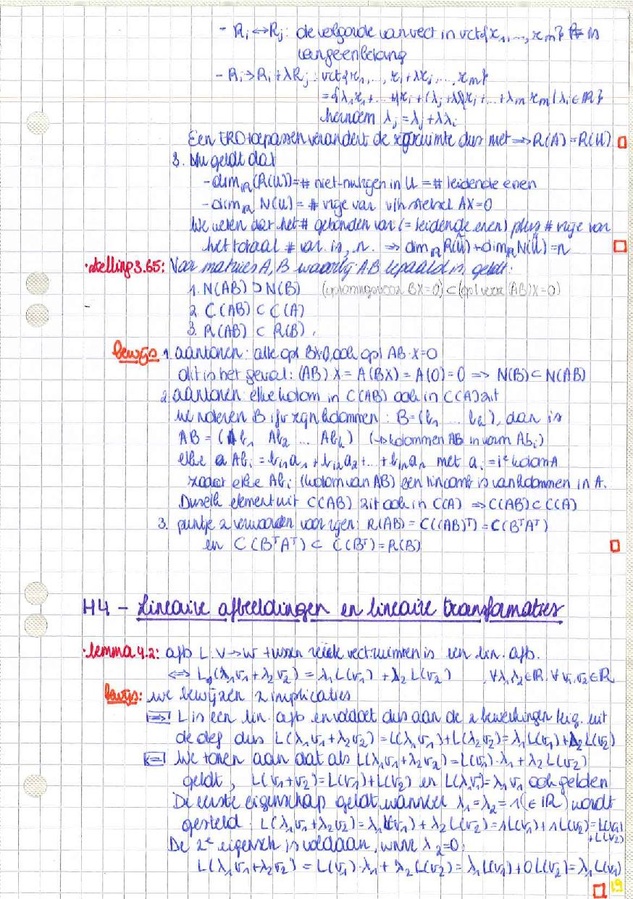 - Ri ↔ Rj : de volgorde van vect in vct{x1, ..., xm} is van geen belang
- Ri → Ri + λRj : vct{x1, ..., xi + λxj, ..., xm}
= {λ1x1 + ... + λixi + (λj + λλi)xj + ... + λmxm | λi ∈ ℝ}
hernoem λj = λj + λλi
Een ERO toepassen verandert de rijruimte dus niet ⇒ R(A) = R(U) □
3. Nu geldt dat
- dimℝ(R(U)) = # niet-nulrijen in U = # leidende enen
- dimℝ N(U) = # vrije var v/h stelsel AX=0
We weten dat het # gebonden var (= leidende enen) plus # vrije var
het totaal # var. is, n. ⇒ dimℝ R(U) + dimℝ N(U) = n □
• stelling 3.65: Voor matrices A, B waarbij AB bepaald is, geldt:
1. N(AB) ⊃ N(B) (oplossingen voor BX=0) ⊂ (opl voor (AB)X=0)
2. C(AB) ⊂ C(A)
3. R(AB) ⊂ R(B).
bewijs 1. aantonen: alle opl BX=0, ook opl AB·X=0
dit is het geval: (AB)X = A(BX) = A(0) = 0 ⇒ N(B) ⊂ N(AB)
2. aantonen: elke kolom in C(AB) ook in C(A) zit
We noteren B ifv zijn kolommen: B = (b1 ... bk), dan is
AB = (Ab1 Ab2 ... Abk) (→ kolommen AB in vorm Abi)
elke Abi = b1i a1 + b2i a2 + ... + bni an met ai = ie kolom A
zodat elke Abi (kolom van AB) een lin comb is van kolommen in A.
Dus elk element uit C(AB) zit ook in C(A) ⇒ C(AB) ⊂ C(A)
3. puntje 2 verwoorden voor rijen: R(AB) = C((AB)ᵀ) = C(BᵀAᵀ)
en C(BᵀAᵀ) ⊂ C(Bᵀ) = R(B) □
H4 - Lineaire afbeeldingen en lineaire transformaties
• lemma 4.2: afb L: V → W tussen reële vectruimten is een lin. afb.
⇔ L(λ1v1 + λ2v2) = λ1L(v1) + λ2L(v2) ∀λ1,λ2 ∈ ℝ, ∀v1,v2 ∈ ℝ
bewijs: we bewijzen 2 implicaties
⇒ L is een lin. afb en voldoet dus aan de 2 bewerkingen uit
de def dus L(λ1v1 + λ2v2) = L(λ1v1) + L(λ2v2) = λ1L(v1) + λ2L(v2)
⇐ We tonen aan dat als L(λ1v1 + λ2v2) = L(v1)·λ1 + λ2L(v2)
geldt, L(v1+v2) = L(v1) + L(v2) en L(λv1) = λ1v1 ook gelden
De eerste eigenschap geldt wanneer λ1 = λ2 = 1 (∈ ℝ) wordt
gesteld: L(λ1v1 + λ2v2) = λ1L(v1) + λ2L(v2) = 1L(v1) + 1L(v2) = L(v1) + L(v2)
De 2e eigensch is voldaan, wnr λ2 = 0:
L(λ1v1 + λ2v2) = L(v1)·λ1 + λ2L(v2) = λ1L(v1) + 0L(v2) = λ1L(v1)
□ 19